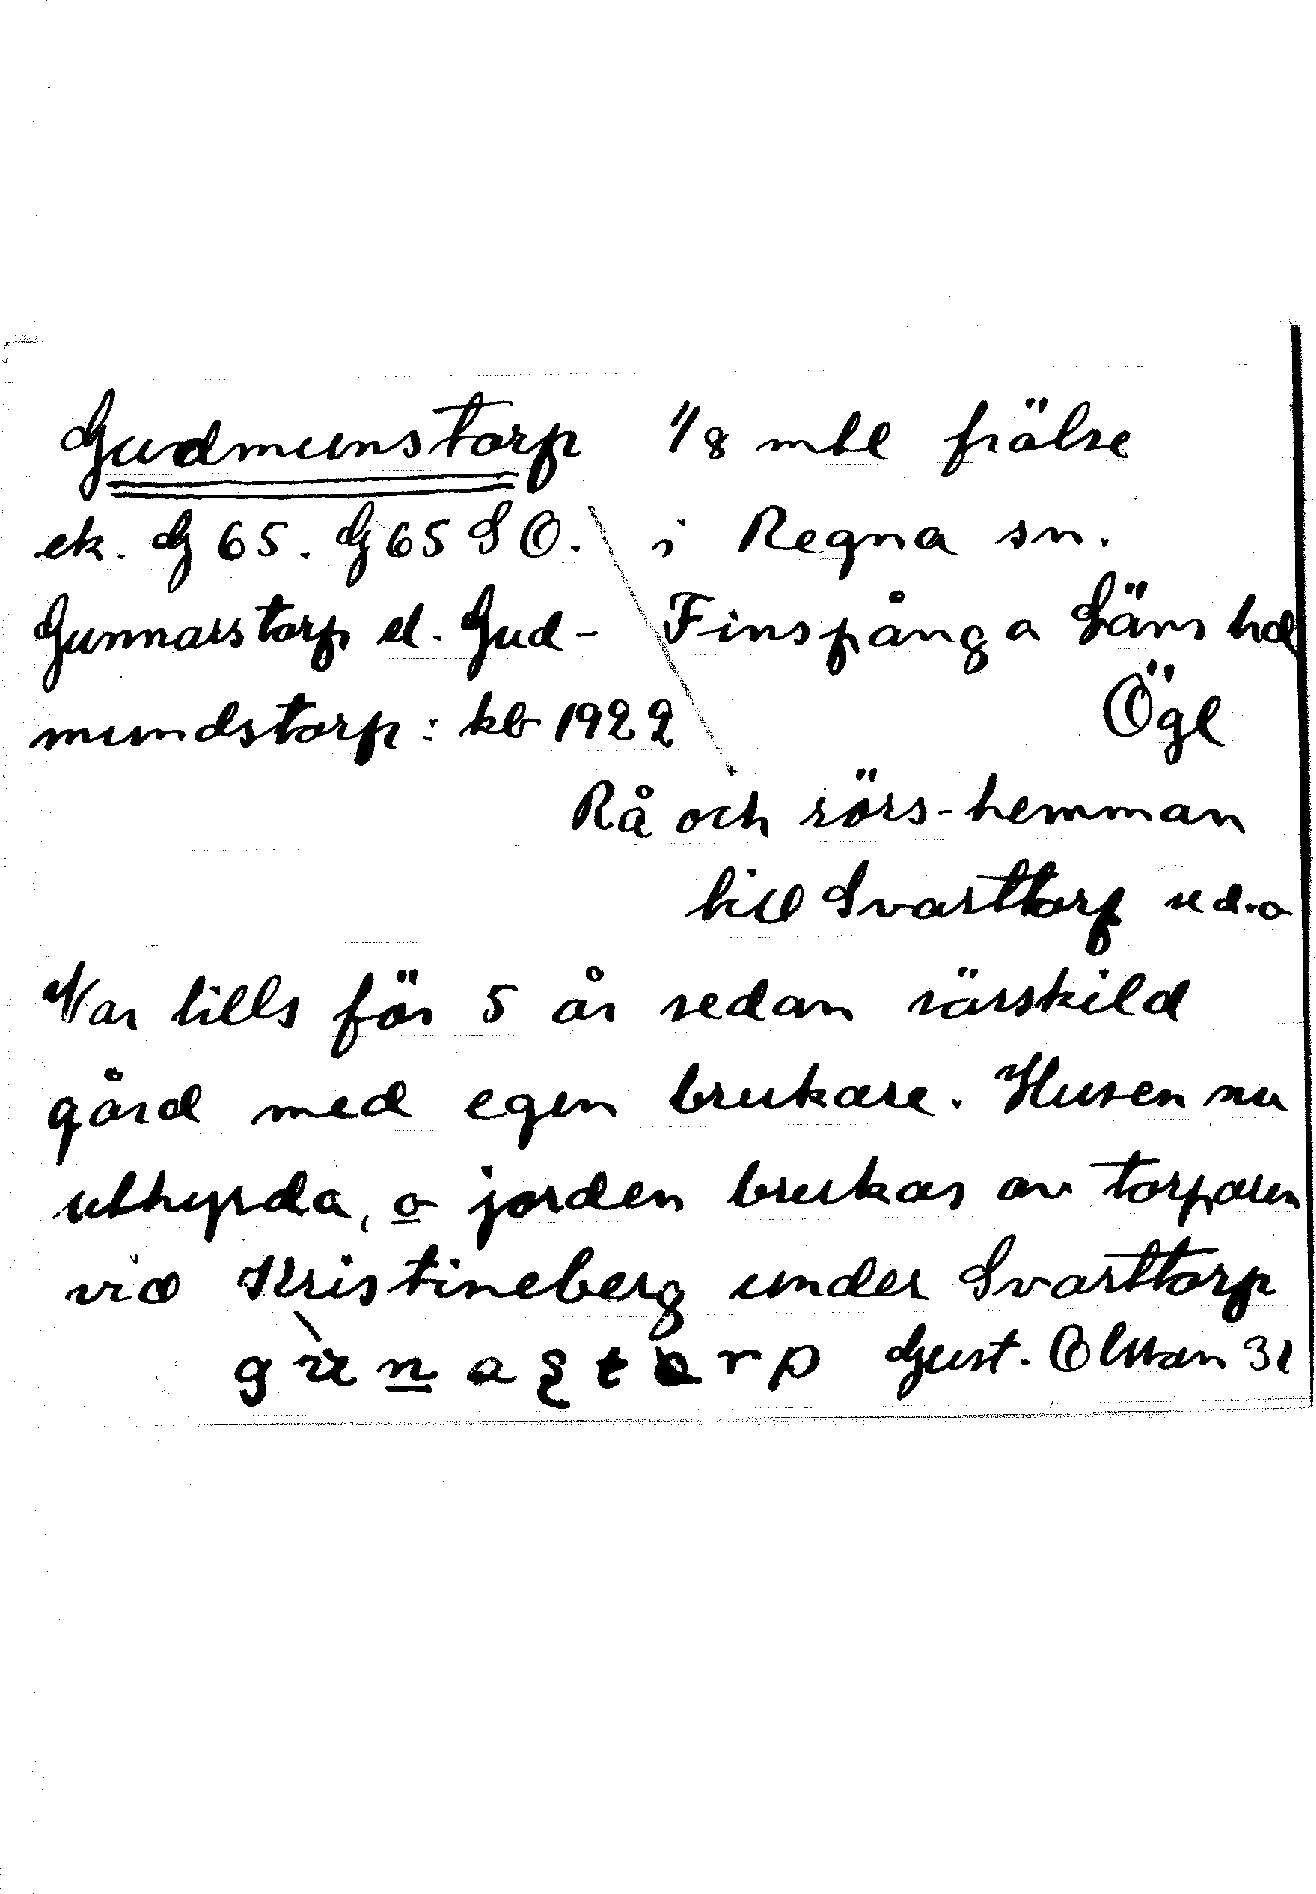 Gudmunstorp 1/8 mtl frälse
ek. G 65. G 65 S O. i Regna sn.
Gunnarstorp el. Gud- Finspånga Läns hd
mundstorp: kb 1922 Ögl
Rå och rörs-hemman
till Svarttorp
Var tills för 5 år sedan särskild
gård med egen brukare. Husen nu
uthyrda, o jorden brukas av torparen
vid Kristineberg under Svarttorp
Gust. Olsson 31